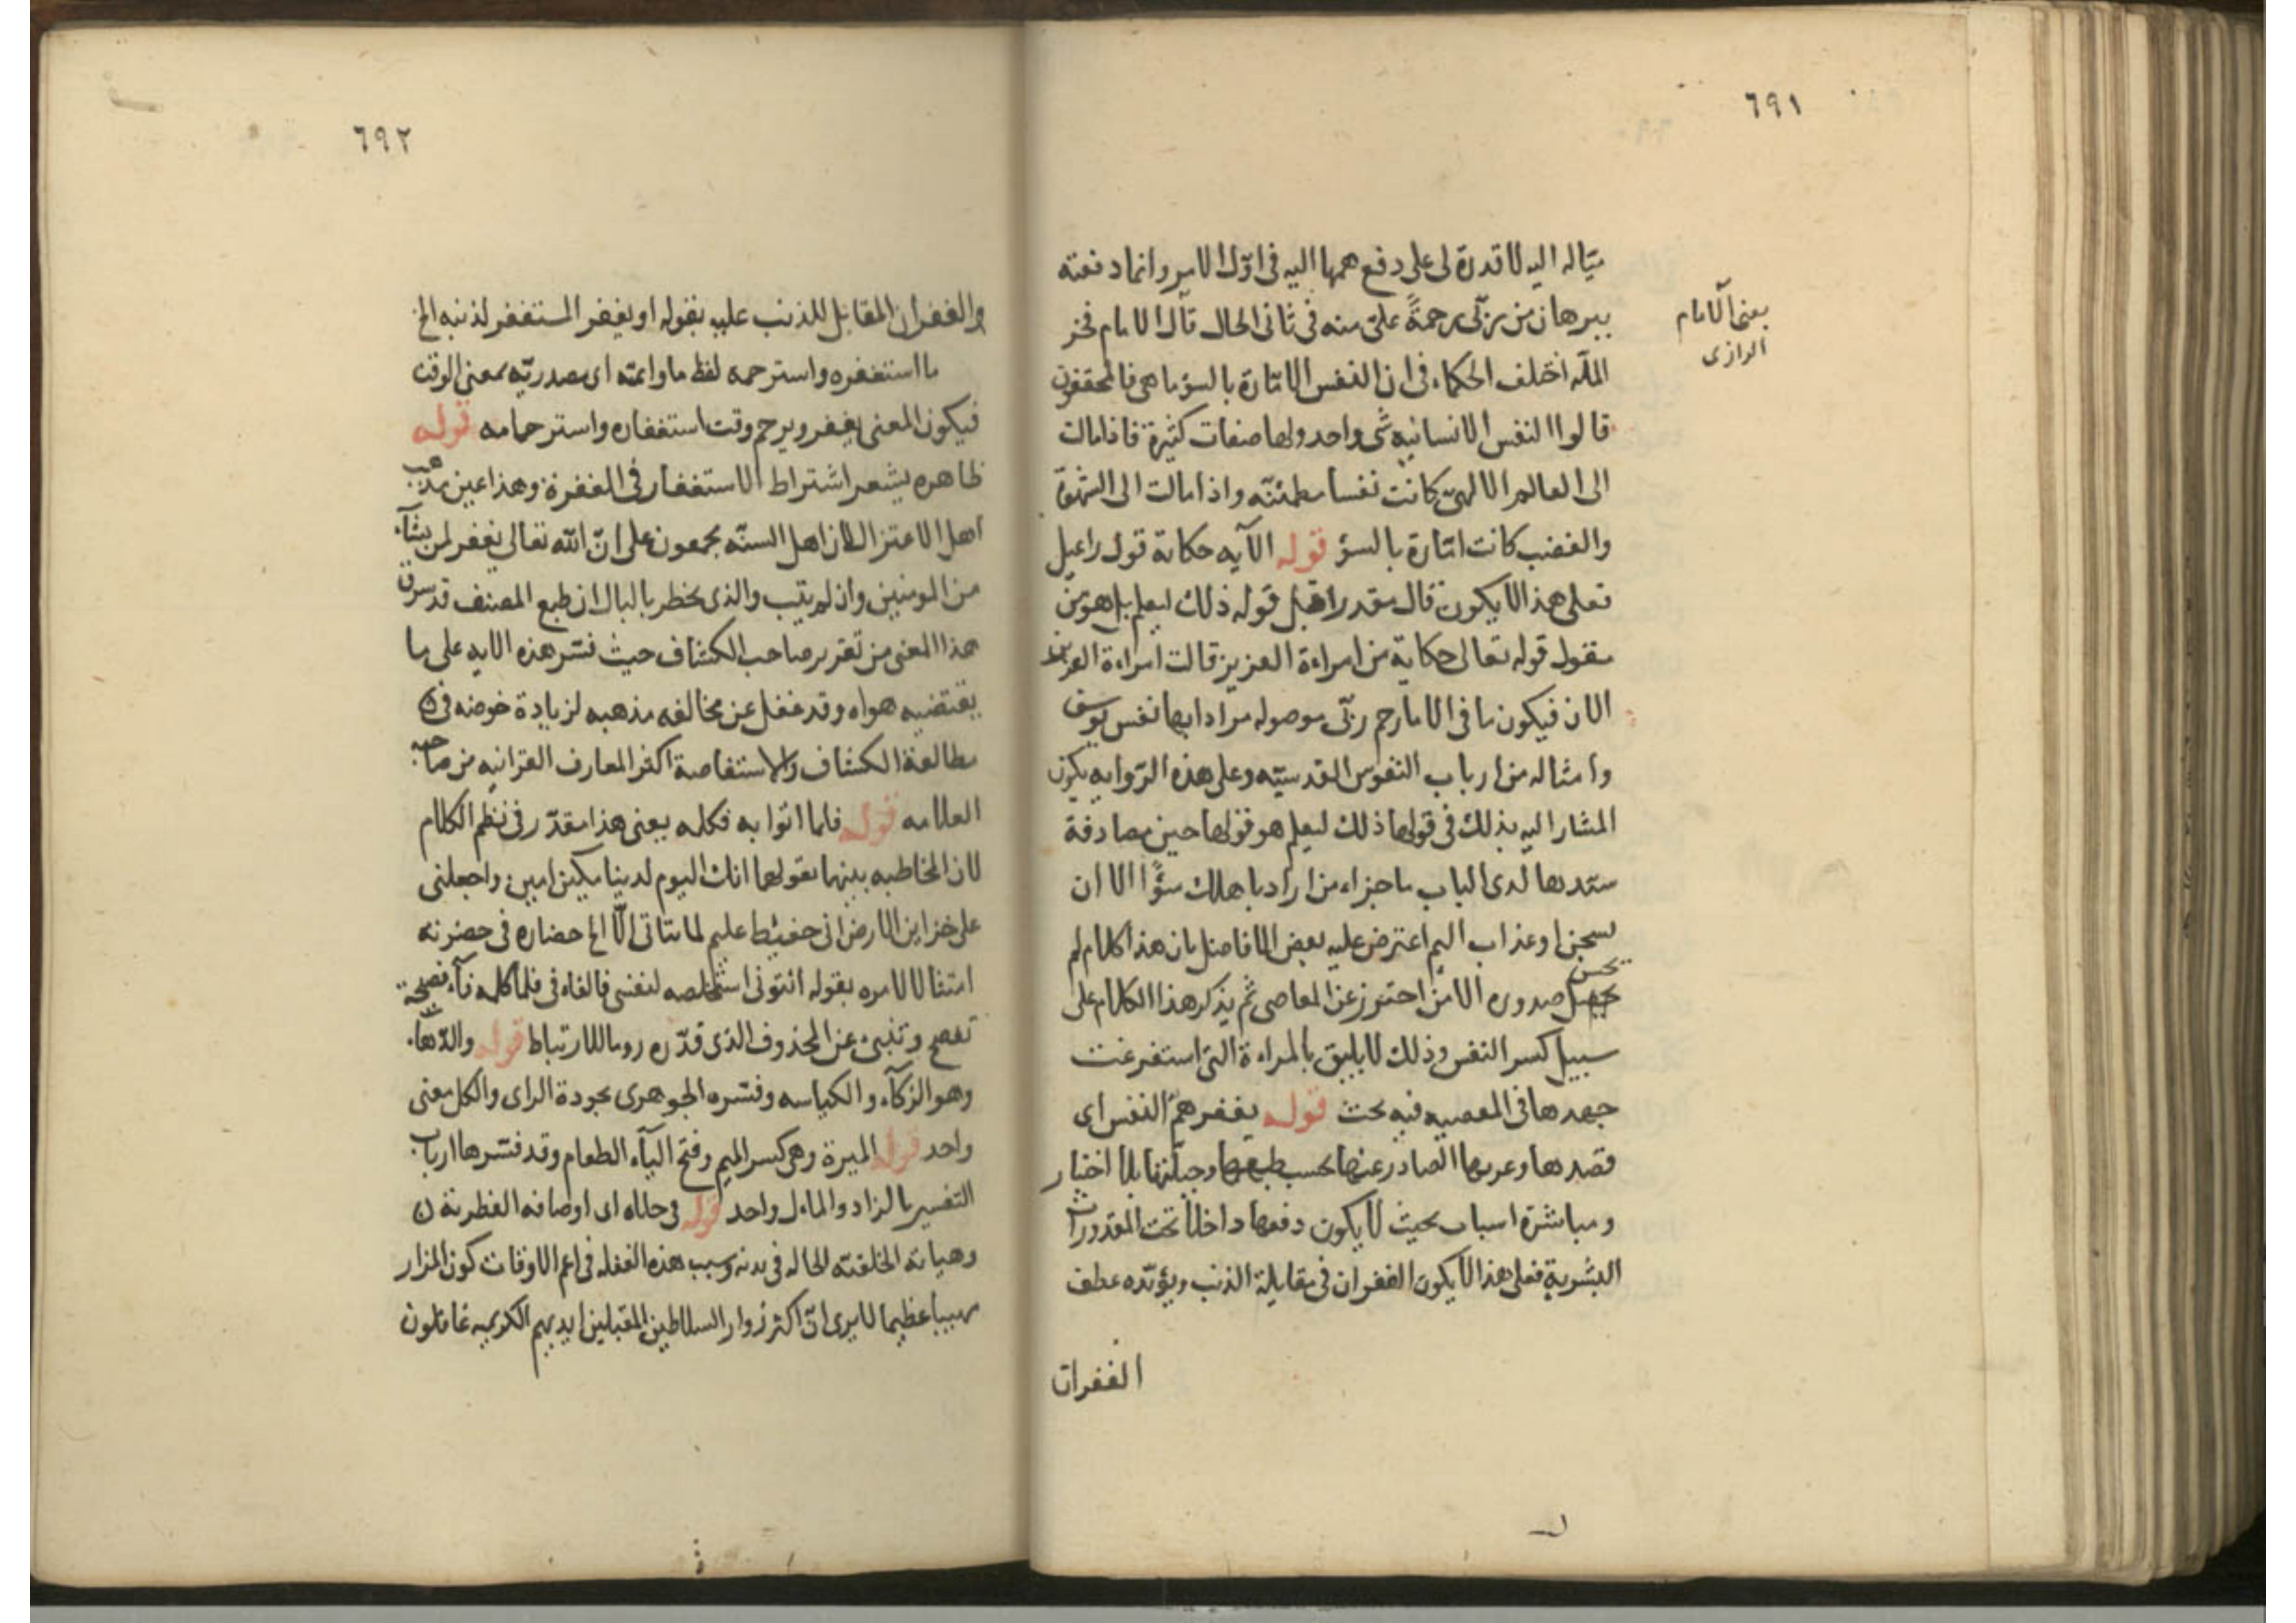 ٦٩١
ميّاله اليه لا قدرة لى على دفع همها اليه فى اوّل الامر وانما دفعته
ببرهان من ربّى رحمةً علىّ منه فى ثانى الحال قال الامام فخر
يعنى الامام
الرازى
الملّه اختلف الحكماء فى ان النفس الامّارة بالسؤ ما هى فالمحققون
قالوا النفس الانسانيه شى واحد ولها صفات كثيرة فاذا مالت
الى العالم الالهىّ كانت نفسا مطمئنّه واذا مالت الى الشهوة
والغضب كانت امّارة بالسؤ قوله الآيه حكاية قول راعيل
فعلى هذا لا يكون قال مقدرا قبل قوله ذلك ليعلم بل هو من
مقول قوله تعالى حكاية من امراءة العزيز قالت امراءة العزيز
الان فيكون ما فى الا ما رحم ربّى موصوله مرادا بها نفس يوسف
وامثاله من ارباب النفوس القدسيّه وعلى هذه الرّوايه يكون
المشار اليه بذلك فى قولها ذلك ليعلم هو قولها حين مصادفة
سيّدها لدى الباب ما جزاء من اراد باهلك سؤًا الا ان
يسجن او عذاب اليم اعترض عليه بعض الافاضل بان هذا كلام لم
يحسن
يحصل صدوره الا من احترز عن المعاصى ثم يذكر هذا الكلام على
سبيل كسر النفس وذلك لا يليق بالمراءة التى استفرغت
جهدها فى المعصيه فيه بحث قوله يغفر همّ النفس اى
قصدها وعزمها الصادر عنها بحسب طبعها وجبلّتها بلا اختيار
ومباشرة اسباب بحيث لا يكون دفعها داخلا تحت المقدورات
البشرية فعلى هذا لا يكون الغفران فى مقابلة الذنب ويؤيّده عطف
الغفران
٦٩٢
والغفران المقابل للذنب عليه بقوله او يغفر المستغفر لذنبه الخ
ما استغفره واسترحمه لفظ ما وايمّه اى مصدريّه بمعنى الوقت
فيكون المعنى يغفر ويرحم وقت استغفاره واسترحامه قوله
ظاهره يشعر اشتراط الاستغفار فى المغفرة وهذا عين مذهب
اهل الاعتزال لان اهل السنّه يجمعون على انّ الله تعالى يغفر لمن يشآء
من المومنين وان لم يتب والذى يخطر بالبال ان طبع المصنف قد سرق
هذا المعنى من تقرير صاحب الكشاف حيث فسّر هذه الايه على ما
يقتضيه هواه وقد غفل عن مخالفه مذهبه لزيادة خوضه فى
مطالعة الكشاف والاستفاضة اكثر المعارف القرانيه من صاحبه
العلامه قوله فلما اتوا به فكلمه يعنى هذا مقدّر فى نظم الكلام
لان المخاطبه بينهما بقولهما انك اليوم لدينا مكين امين واجعلنى
على خزاين الارض انى حفيظ عليم لما يتاتى الّا الخ حضاره فى حضرته
امتثالا لامره بقوله ائتونى استخلصه لنفسى فالفاء فى فلما كلمه فآء فصيحة
تفصح وتنبئ عن المحذوف الذى قدّره روما للارتباط قوله والدّهاء
وهو الزكآء والكياسه وفسّره الجوهرى بجودة الراى والكل معنى
واحد قوله الميرة وهى كسر الميم وفتح اليآء الطعام وقد فسّرها ارباب
التفسير بالزاد والمال واحد قوله فى حلاه اى اوصافه الفطرية
وهياته الخلقيّه الحاله فى بدنه وسبب هذه الغفله فى اعم الاوقات كون المزار
مهيبا عظيما الا يرى انّ اكثر زوار السلاطين المقبلين ايديهم الكريمه غافلون